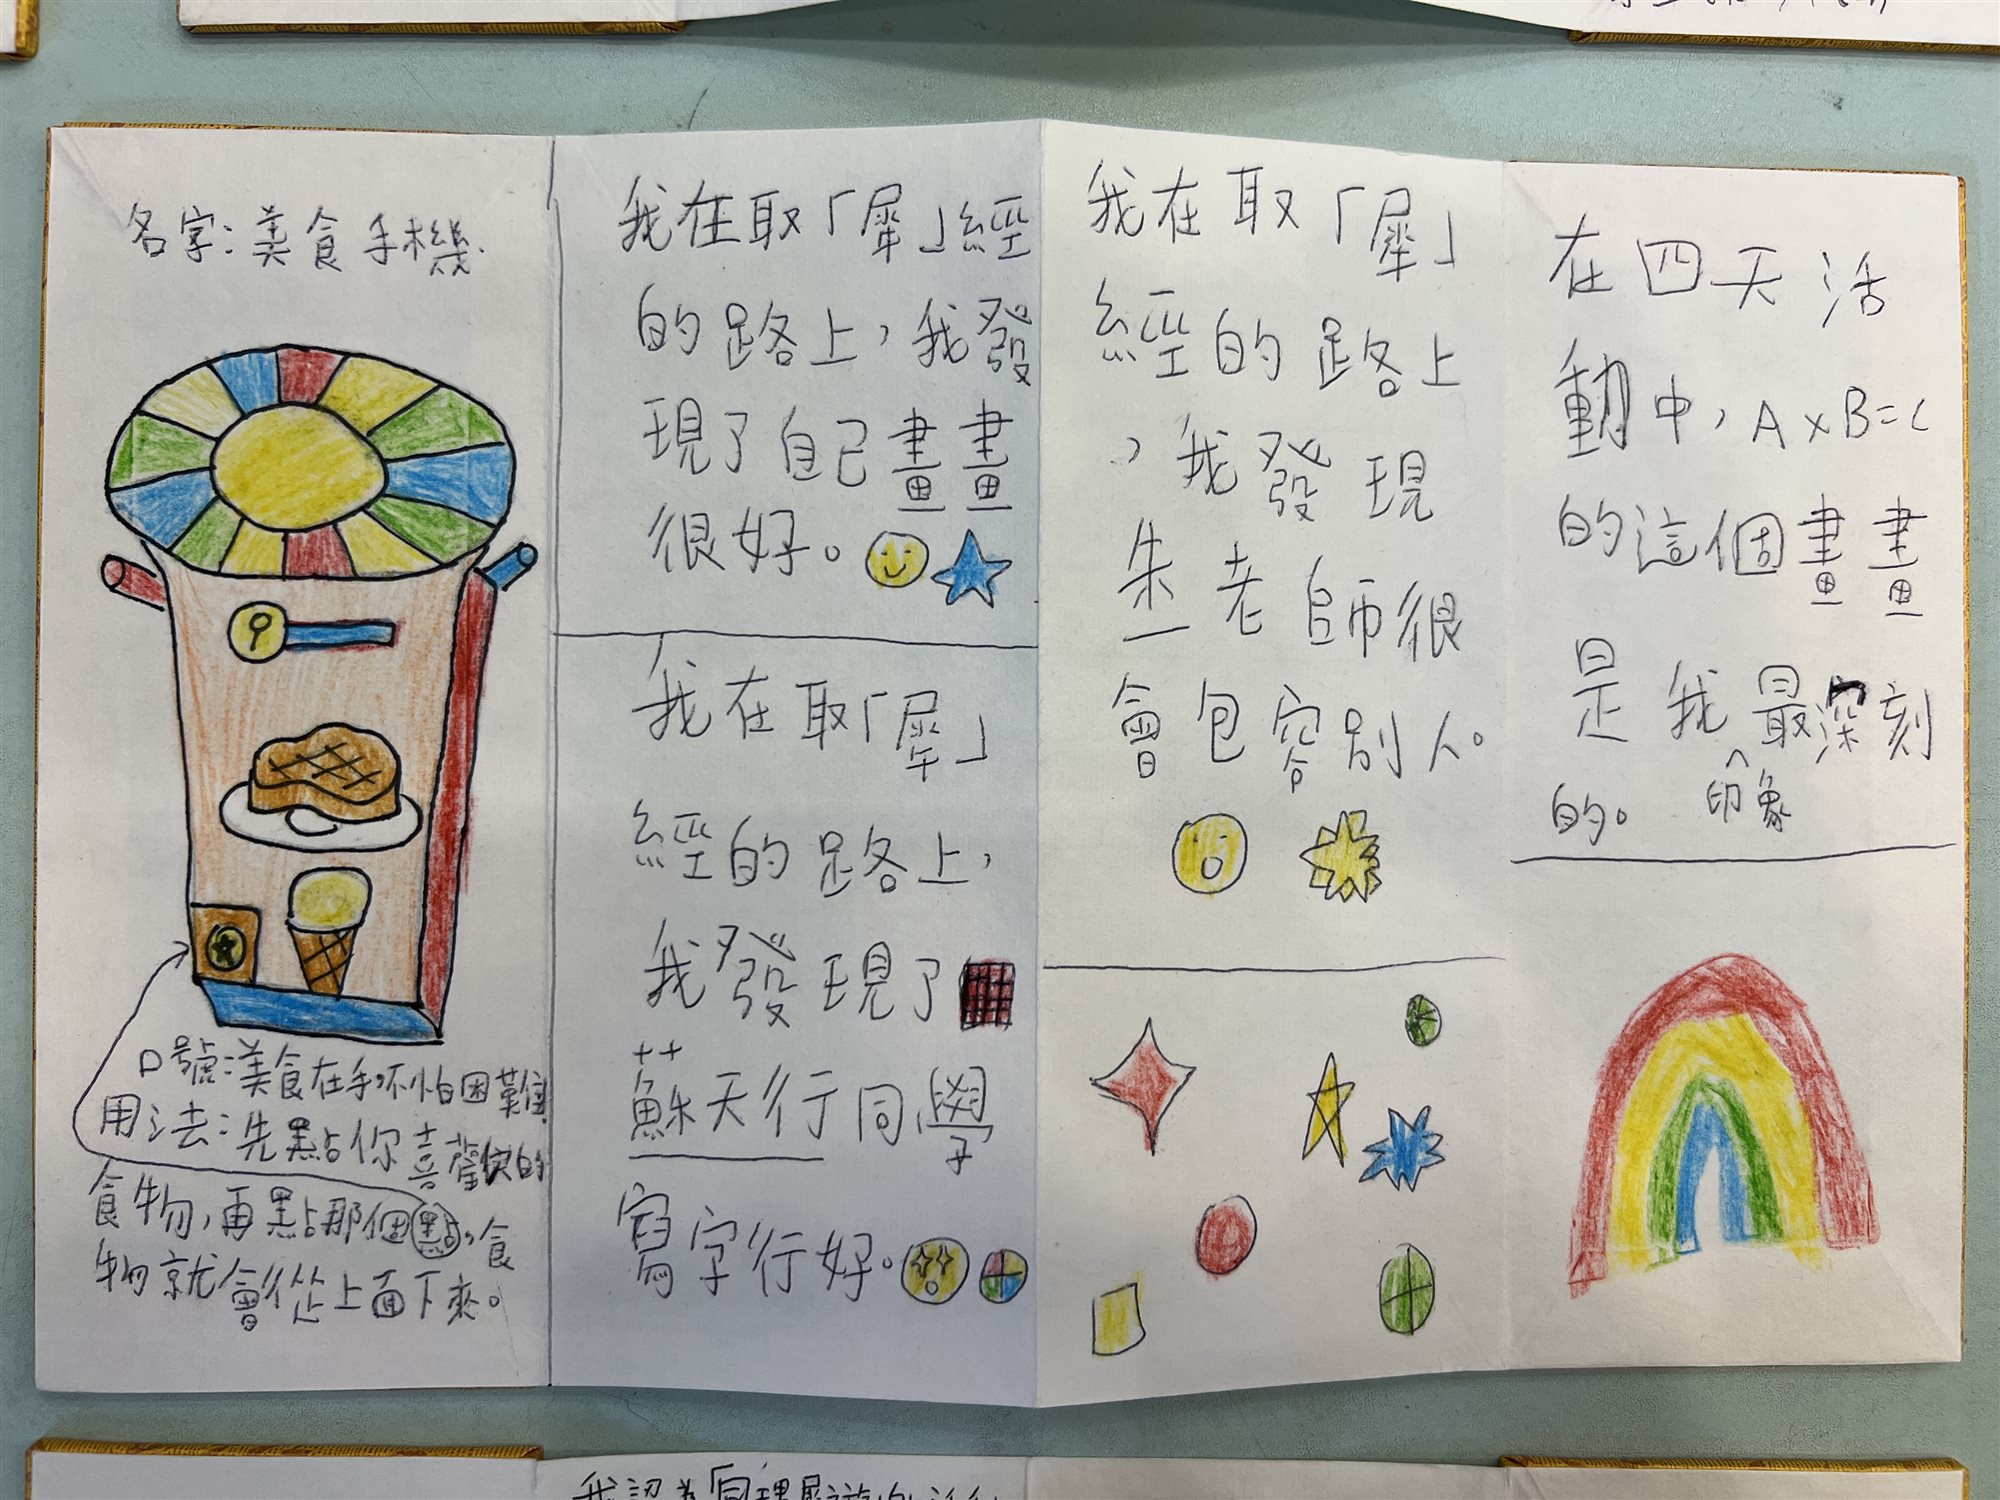 名字：美食手機
口號：美食在手，不怕困難
用法：先點你喜歡的
食物，再點那個點，食
物就會從上面下來。
我在取「犀」經
的路上，我發
現了自己畫畫
很好。
我在取「犀」
經的路上，
我發現了
蘇天行同學
寫字行好。
我在取「犀」
經的路上
，我發現
朱老師很
會包容別人。
在四天活
動中，A×B=C
的這個畫畫
是我最深刻
印象
的。